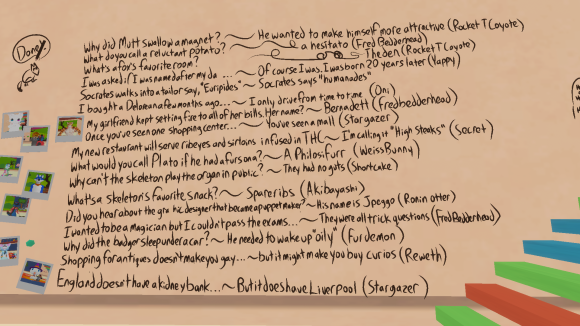 Done!
Why did Mutt swallow a magnet? ~ He wanted to make himself more attractive (Rocket T Coyote)
What do you call a reluctant potato? ~ a hesitato (Fred Bedderhead)
What's a fox's favorite room? ~ The den (Rocket T Coyote)
I was asked if I was named after my da... ~ Of course I was. I was born 20 years later (Yappy)
Socrates walks into a tailor say, "Euripides" ~ Socrates says "humanades"
I bought a Delorean a few months ago... ~ I only drive from time to time (Oni)
My girlfriend kept setting fire to all of her bills. Her name? ~ Bernadett (fredbedderhead)
Once you've seen one shopping center... ~ You've seen a mall (Stargazer)
My new restaurant will serve ribeyes and sirloins infused in THC ~ I'm calling it "High Steaks" (Socrot)
What would you call Plato if he had a fursona? ~ A Philosifurr (WeissBunny)
Why can't the skeleton play the organ in public? ~ They had no guts (Shortcake)
What's a skeleton's favorite snack? ~ Spareribs (Akibayashi)
Did you hear about the graphic designer that became a puppet maker? ~ His name is Jpeggo (Ronin otter)
I wanted to be a magician but I couldn't pass the exams... ~ They were all trick questions (Fred Bedderhead)
Why did the badger sleep under a car? ~ He needed to wake up "oily" (furdemon)
Shopping for antiques doesn't make you gay... ~ but it might make you buy curios (Reweth)
England doesn't have a kidney bank... ~ But it does have Liverpool (Stargazer)